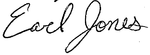 Earl Jones